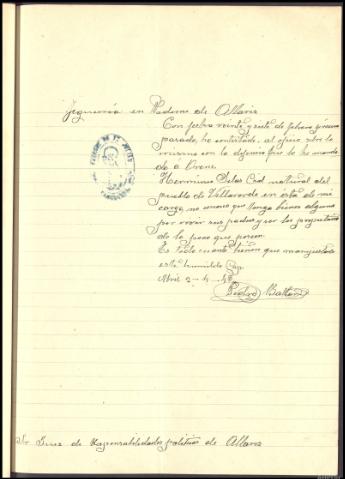 en Maderne de Allariz
Con fecha veinte y siete de febrero
pasado, he contestado, al oficio sobre lo
mismo con la diferencia que lo he manda
do á Orense.
Herminio Silas Cid natural del
pueblo de Villaverde en esta de mi
cargo no consta que tenga bienes alguno
por vivir sus padres y ser los propietarios
de lo poco que poseen.
Es todo cuanto tienen que manifestar
este humilde
Pedro
Sr Juez de Responsabilidades politicas de Allariz